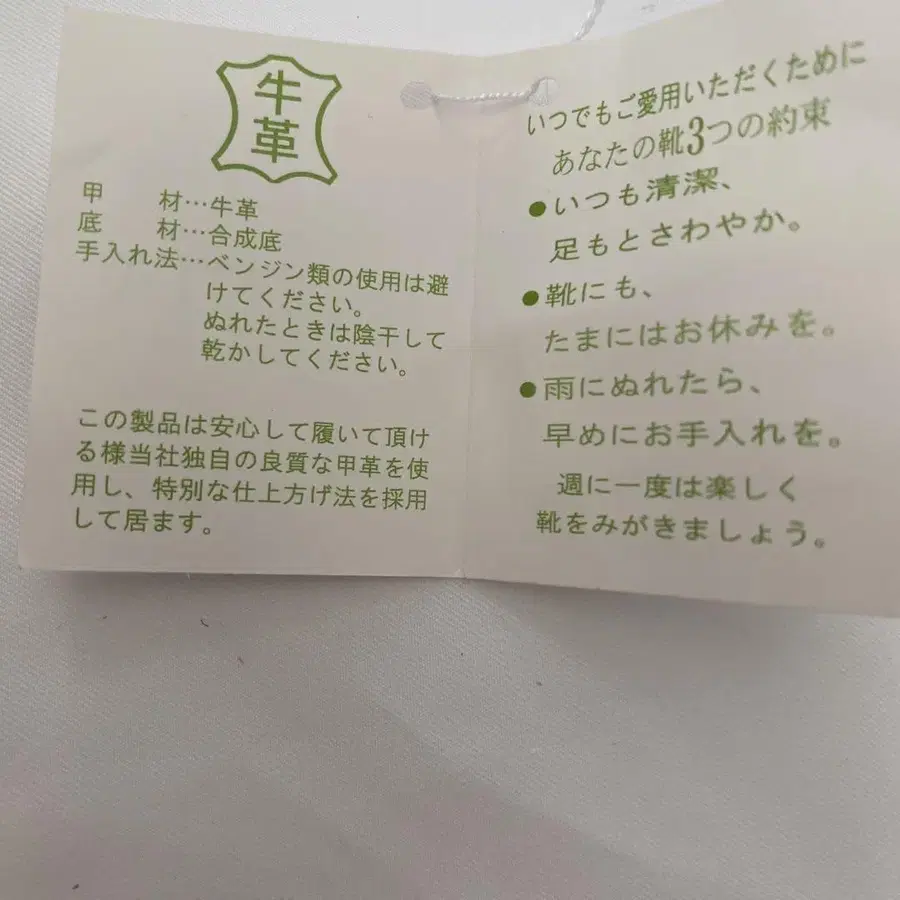 牛
革
甲 材…牛革
底 材…合成底
手入れ法…ベンジン類の使用は避
けてください。
ぬれたときは陰干して
乾かしてください。
この製品は安心して履いて頂け
る様当社独自の良質な甲革を使
用し、特別な仕上方げ法を採用
して居ます。
いつでもご愛用いただくために
あなたの靴3つの約束
●いつも清潔、
足もとさわやか。
●靴にも、
たまにはお休みを。
●雨にぬれたら、
早めにお手入れを。
週に一度は楽しく
靴をみがきましょう。